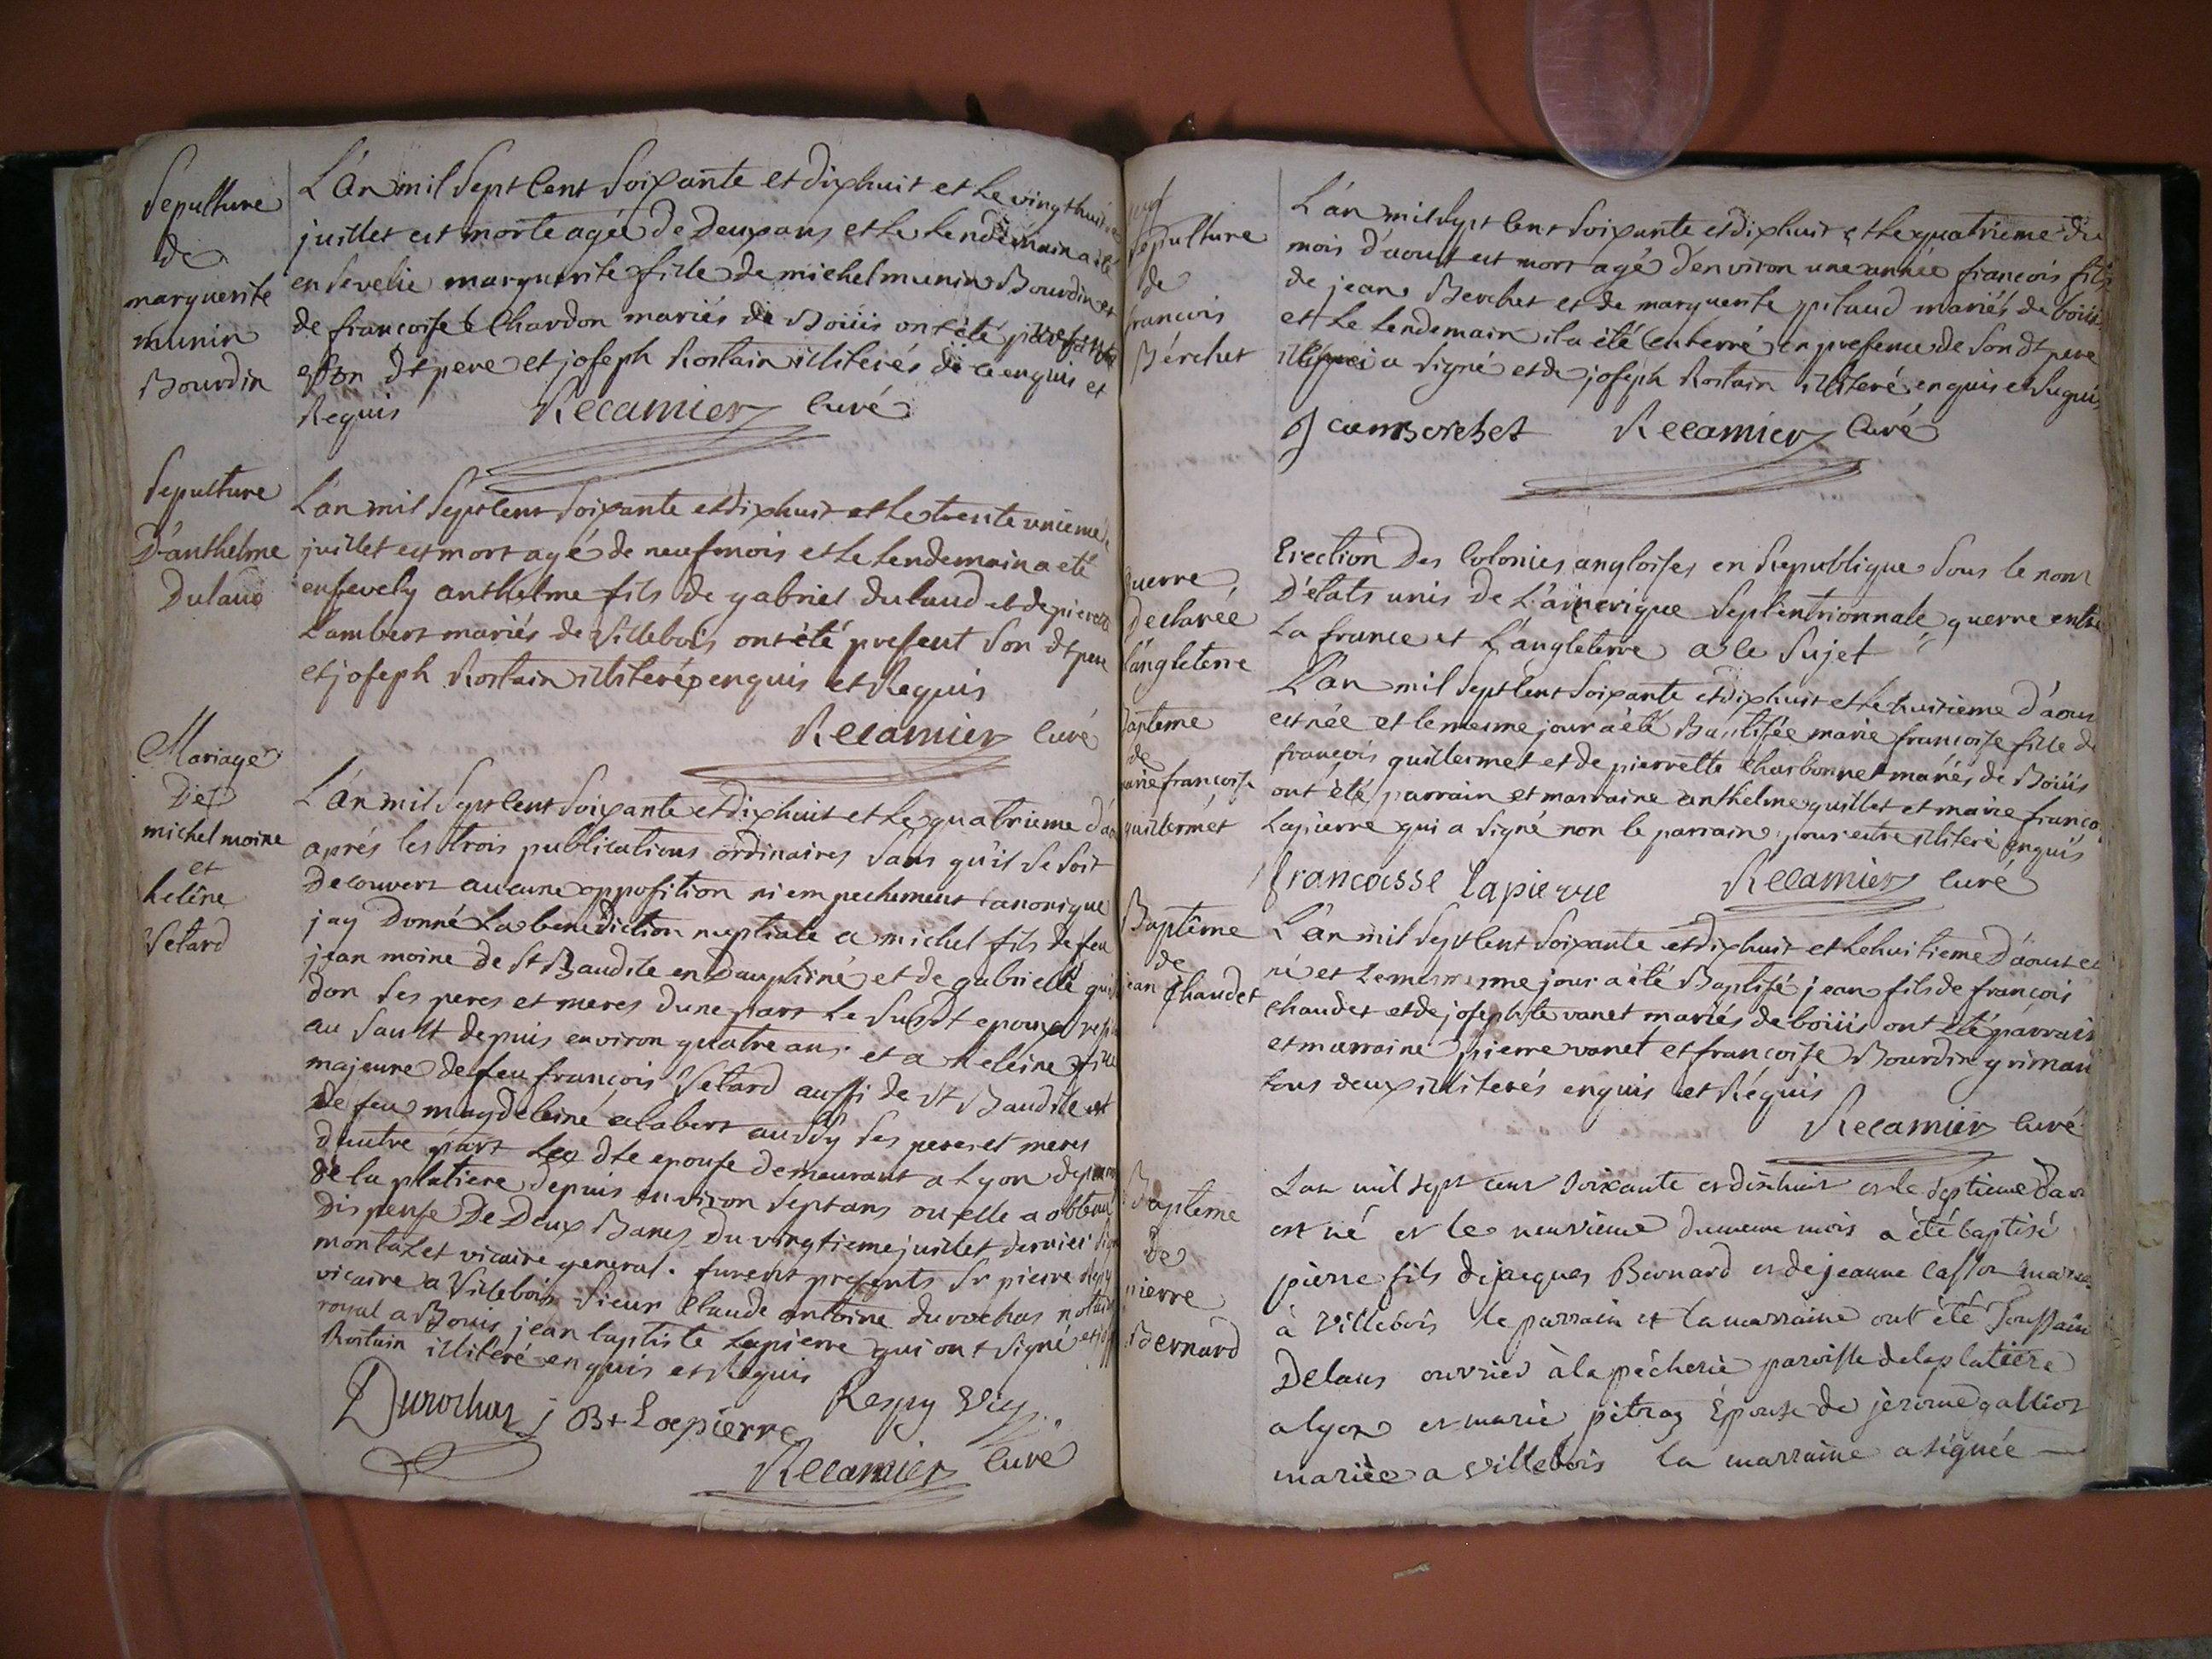 Sepulture
de
marguerite
munin
Bourdin
L'an mil sept Cent soixante et dixhuit et le vingthuit
juillet est morte agée de deux ans et le lendemain a été
ensevelie marguerite fille de michel munin Bourdin et
de francoise Chardon mariés de Boüis ont été
son dt pere et joseph Rostain illiterés de ce enquis et
Requis Recamier Curé
Sepulture
D'anthelme
Dulaud
L'an mil Sept Cent soixante et dixhuit et le trente unieme
juillet est mort agé de neuf mois et le lendemain a eté
ensevely anthelme fils de gabriel dulaud et de pierrette
Lambert mariés de Villebois ont été present son dt pere
et joseph Rostain illiterés enquis et Requis
Recamier Curé
Mariage
Des
michel moine
et
heléne
Vetard
L'an mil Sept Cent Soixante et dixhuit et le quatrieme d'ao
aprés les trois publications ordinaires sans qu'il se soit
Decouvert aucune opposition ni empechement canonique
jay Donné La benediction nuptiale a michel fils de feu
jean moine de St Baudile en Dauphiné et de gabrielle
don ses peres et meres dune part Le susdt epoux
au Sault depuis environ quatre ans et a heleine fille
majeure de feu françois Vetard aussi de St Baudile et
De feu magdeleine alabert aussy ses peres et meres
d'autre part La dte epouse demeurant a Lyon
de la platiere depuis environ sept ans ou elle a obtenu
Dispense De Deux Bancs du vingtieme juillet dernier
montazet vicaire general. furent presents Sr pierre
vicaire a Villebois Sieur Claude antoine durochas notaire
royal a Bouis jean baptiste Lapierre qui ont signé et
Rostain illiteré enquis et Requis
Durochas j Bt Lapierre Respy Vic
Recamier Curé
Sepulture
de
francois
Bérchet
L'an mil sept Cent soixante et dixhuit et le quatrieme du
mois d'aoust est mort agé d'environ une année francois fils
de jean Berchet et de marguerite pitaud mariés de boüis
et Le Lendemain il a été enterré en presence de Son dt pere
qui a signé et de joseph Rostain illiteré enquis et Requis
Jean Berchet Recamier Curé
Guerre
Declarée
L'angleterre
Erection Des Colonies angloises en Republique Sous le nom
D'états unis de L'amerique Septentrionnale guerre entre
La france et L'angleterre a Ce Sujet
Bapteme
de
marie francoise
guillermet
L'an mil sept Cent soixante et dixhuit et le huitieme d'aoust
est née et le mesme jour a été Baptisée marie francoise fille de
françois guillermet et de pierrette Charbonnet mariés de Boüis
ont été parrain et marraine anthelme guillet et marie franco
Lapierre qui a signé non le parrain pour etre illiteré enquis
francoisse lapierre Recamier Curé
Baptême
de
jean Chaudet
L'an mil Sept Cent Soixante et dixhuit et le huitieme d'aoust est
né et le mesme jour a été Baptisé jean fils de françois
chaudet et de josephte vanet mariés de boüis ont été parrain
et marraine pierre vanet et françoise Bourdin griman
tous deux illiterés enquis et Réquis
Recamier Curé
Bapteme
de
pierre
Bernard
L'an mil sept cent soixante et dixhuit et le septieme d'aou
est né et le neuvieme du meme mois a été baptisé
pierre fils de jacques Bernard et de jeanne Caston mariés
à Villebois le parrain et la marraine ont été Toussain
Delans ouvrier à la pêcherie paroisse de la platiere
a lyon et marie pitraz Epouse de jèrome galliot
mariée a Villebois la marraine a signée